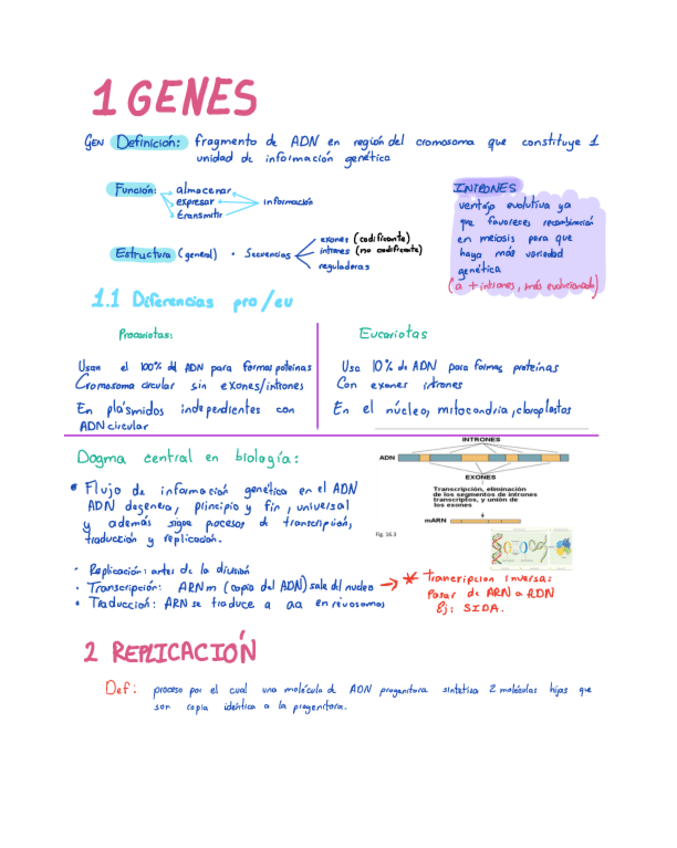 1 GENES
GEN Definición: fragmento de ADN en región del cromosoma que constituye 1
unidad de información genética
Función: almacenar
expresar información
transmitir
INTRONES
ventaja evolutiva ya
que favoreces recombinación
en meiosis para que
haga más variedad
genética
(a + intrones, más evolucionado)
Estructura (general) · Secuencias
exones (codificante)
intrones (no codificante)
reguladoras
1.1 Diferencias pro/eu
Procariotas:
Usan el 100% del ADN para formas poteinas
Cromosoma circular sin exones/intrones
En plásmidos independientes con
ADN circular
Eucariotas
Usa 10% de ADN para formas proteinas
Con exones intrones
En el núcleo, mitocondria, cloroplastos
Dogma central en biología:
• Flujo de información genética en el ADN
ADN degenera, principio y fin, universal
y además sigue procesos de transcripción,
traducción y replicación.
· Replicación: antes de la división
· Transcripción: ARNm (copia del ADN) sale del nucleo
· Traducción: ARN se traduce a aa en rivosomas
INTRONES
ADN
EXONES
Transcripción, eliminación
de los segmentos de intrones
transcriptos, y unión de
los exones
mARN
Fig. 16.3
* Trancripcion inversa:
Pasar de ARN a ADN
Ej: SIDA.
2 REPLICACIÓN
Def: proceso por el cual una molécula d ADN progenitora sintetiza 2 moléculas hijas que
son copia idéntica a la progenitora.